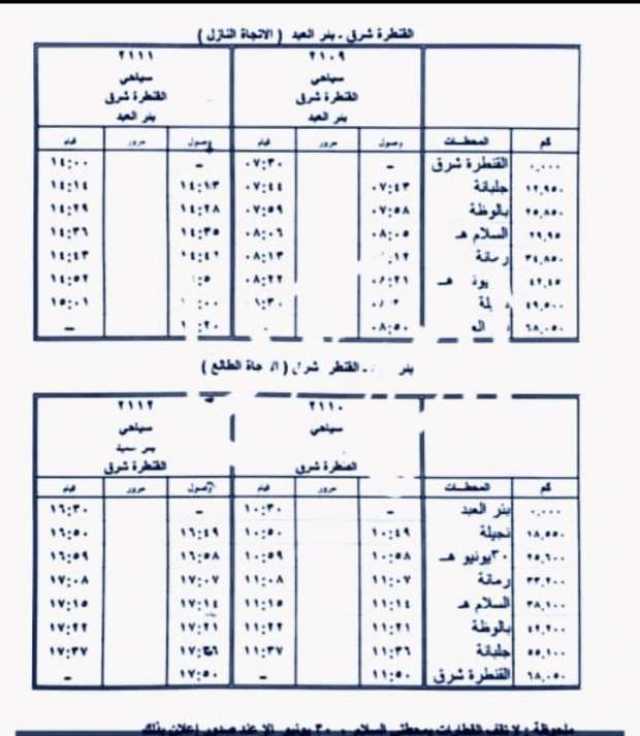 القنطرة شرق - بئر العبد ( الاتجاة النازل )
٢١٠٩ ٢١١١
سياحي سياحي
القنطرة شرق القنطرة شرق
بئر العبد بئر العبد
كم المحطات وصول مرور قيام وصول مرور قيام
٠,٠٠٠ القنطرة شرق – ٠٧:٣٠ – ١٤:٠٠
١٢,٩٥٠ جلبانة ٠٧:٤٣ ٠٧:٤٤ ١٤:١٣ ١٤:١٤
٢٥,٨٥٠ بالوظة ٠٧:٥٨ ٠٧:٥٩ ١٤:٢٨ ١٤:٢٩
٢٩,٩٥ السلام هـ ٠٨:٠٥ ٠٨:٠٦ ١٤:٣٥ ١٤:٣٦
٣٤,٨٥٠ رمانة :١٢ ٠٨:١٣ ١٤:٤٢ ١٤:٤٣
٤٢,٤٥ هـ :٢١ ٠٨:٢٢ ١٤:٥٢
٤٩,٥٠٠ :٣٠ :٠٠ ١٥:٠١
٦٨,٠٥٠ ٠٨:٥٠ :٢٠ –
بئر - القنطر شرق ( الطالع )
٢١١٠ ٢١١٢
سياحي سياحي
بئر
القنطرة شرق القنطرة شرق
كم المحطات وصول مرور قيام وصول مرور قيام
٠,٠٠٠ بئر العبد – ١٠:٣٠ – ١٦:٣٠
١٨,٥٥٠ نجيلة ١٠:٤٩ ١٠:٥٠ ١٦:٤٩ ١٦:٥٠
٢٥,٦٠٠ ٣٠يونيو هـ ١٠:٥٨ ١٠:٥٩ ١٦:٥٨ ١٦:٥٩
٣٣,٢٠٠ رمانة ١١:٠٧ ١١:٠٨ ١٧:٠٧ ١٧:٠٨
٣٨,١٠٠ السلام هـ ١١:١٤ ١١:١٥ ١٧:١٤ ١٧:١٥
٤٢,٢٠٠ بالوظة ١١:٢١ ١١:٢٢ ١٧:٢١ ١٧:٢٢
٥٥,١٠٠ جلبانة ١١:٣٦ ١١:٣٧ ١٧:٣٦ ١٧:٣٧
٦٨,٠٥٠ القنطرة شرق ١١:٥٠ – ١٧:٥٠ –
ملحوظة : لا تقف القطارات بمحطتى السلام ، ٣٠ يونيو إلا عند صدور إعلان بذلك